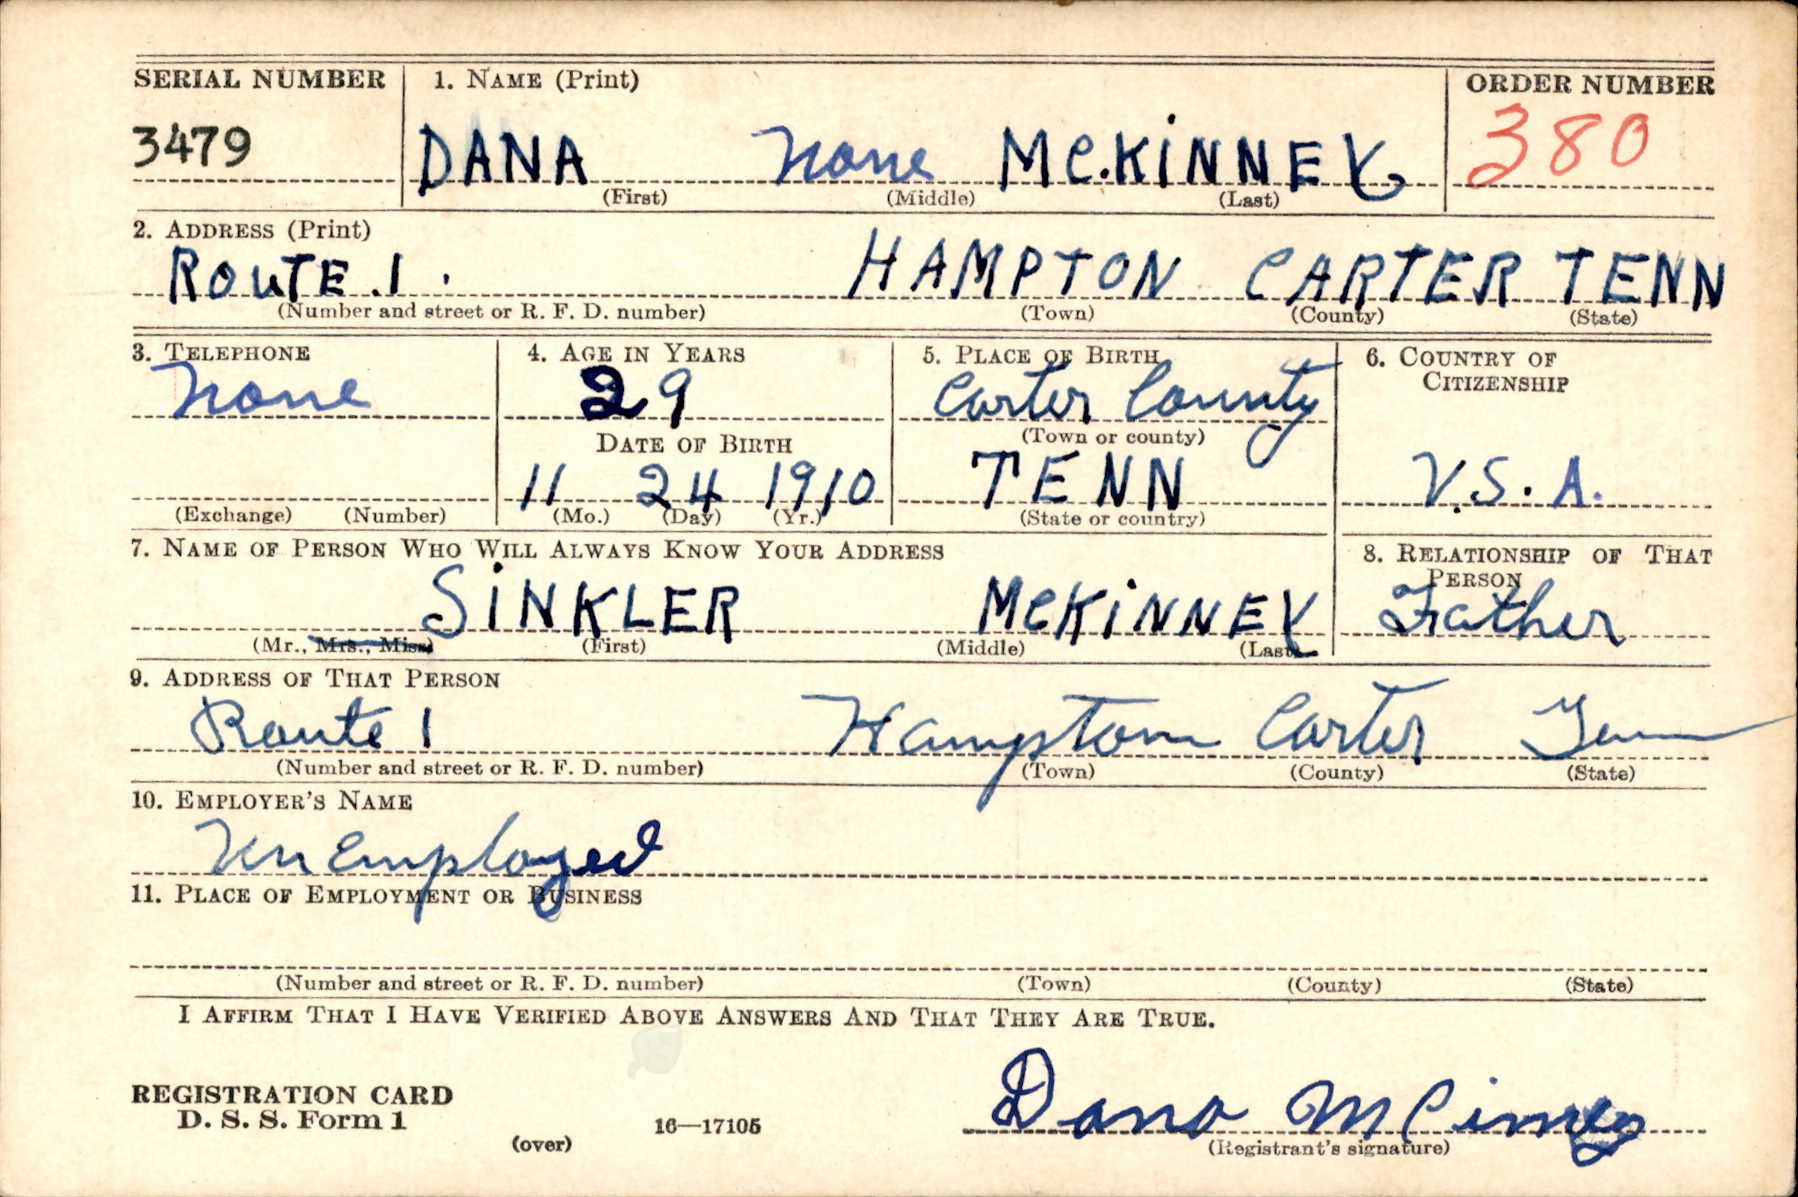 SERIAL NUMBER 1. NAME (Print) ORDER NUMBER
3479 DANA None MC.KINNEY 380
(First) (Middle) (Last)
2. ADDRESS (Print)
ROUTE.1. HAMPTON CARTER TENN
(Number and street or R. F. D. number) (Town) (County) (State)
3. TELEPHONE 4. AGE IN YEARS 5. PLACE OF BIRTH 6. COUNTRY OF CITIZENSHIP
None 29 Carter County
DATE OF BIRTH (Town or county)
11 24 1910 TENN U.S.A.
(Exchange) (Number) (Mo.) (Day) (Yr.) (State or country)
7. NAME OF PERSON WHO WILL ALWAYS KNOW YOUR ADDRESS 8. RELATIONSHIP OF THAT PERSON
SINKLER MCKINNEY Father
(Mr., Mrs., Miss) (First) (Middle) (Last)
9. ADDRESS OF THAT PERSON
Route 1 Hampton Carter Tenn
(Number and street or R. F. D. number) (Town) (County) (State)
10. EMPLOYER'S NAME
Un Employed
11. PLACE OF EMPLOYMENT OR BUSINESS
(Number and street or R. F. D. number) (Town) (County) (State)
I AFFIRM THAT I HAVE VERIFIED ABOVE ANSWERS AND THAT THEY ARE TRUE.
REGISTRATION CARD
D. S. S. Form 1 16—17105 Dana
(over) (Registrant's signature)